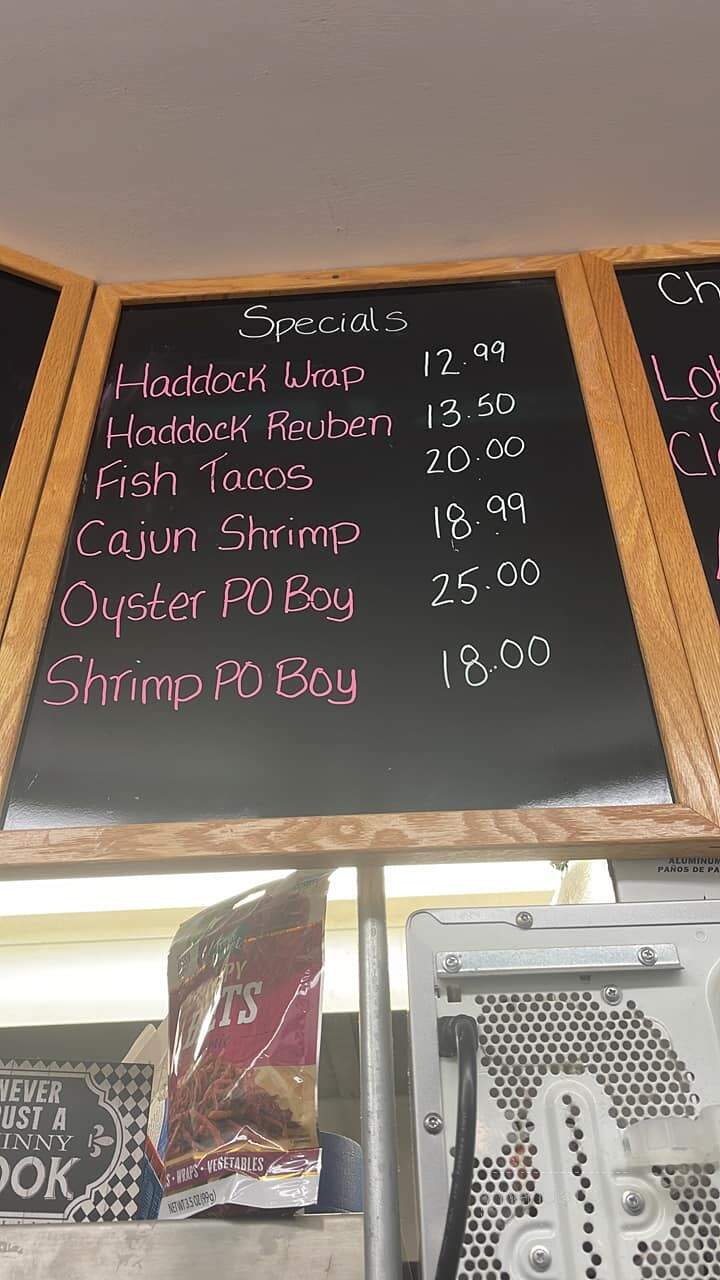 Specials
Haddock Wrap 12.99
Haddock Reuben 13.50
Fish Tacos 20.00
Cajun Shrimp 18.99
Oyster PO Boy 25.00
Shrimp PO Boy 18.00
Ch
Lo
Cl
ALUMINUM
PAÑOS DE PA
NEVER
UST A
INNY
OOK
PY
WRAPS • VEGETABLES
NET WT 3.5 OZ (99g)